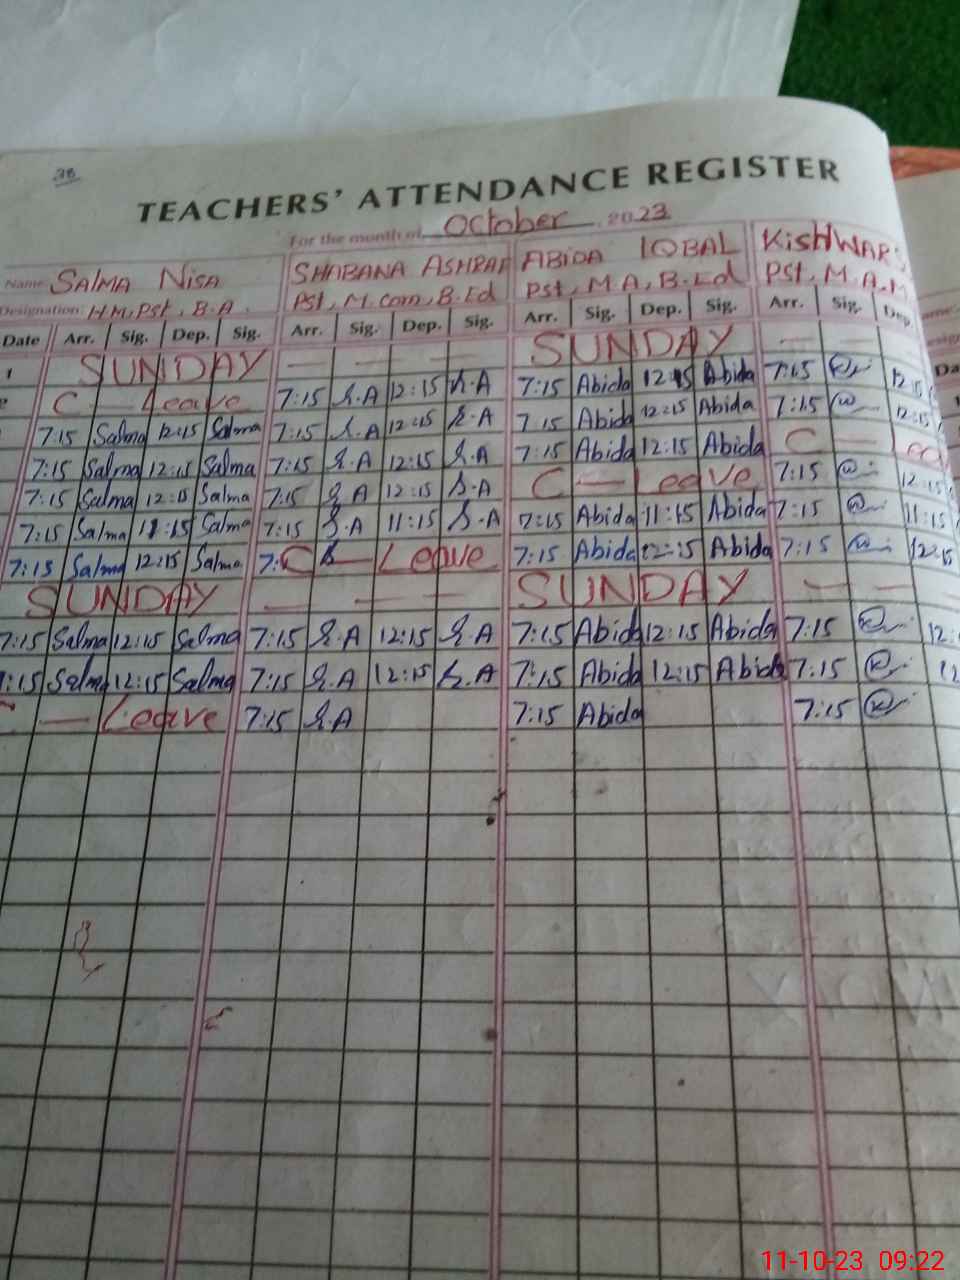 38
TEACHERS' ATTENDANCE REGISTER
For the month of October 2023
Name SALMA NISA SHABANA ASHRAF ABIDA IQBAL KISHWAR
Designation: HM, Pst, B.A. Pst, M.com, B.Ed Pst, M.A, B.Ed Pst, M.A, M.
Date Arr. Sig. Dep. Sig. Arr. Sig. Dep. Sig. Arr. Sig. Dep. Sig. Arr. Sig. Dep.
1 SUNDAY — — — — SUNDAY — —
C — Leave 7:15 S.A 12:15 S.A 7:15 Abida 12:15 Abida 7:15 12:15
7:15 Salma 12:15 Salma 7:15 S.A 12:15 S.A 7:15 Abida 12:15 Abida 7:15 12:15
7:15 Salma 12:15 Salma 7:15 S.A 12:15 S.A 7:15 Abida 12:15 Abida C — Lea
7:15 Salma 12:15 Salma 7:15 S.A 12:15 S.A C — Leave 7:15 12:15
7:15 Salma 11:15 Salma 7:15 S.A 11:15 S.A 7:15 Abida 11:15 Abida 7:15 11:15
7:15 Salma 12:15 Salma C — Leave 7:15 Abida 12:15 Abida 7:15 12:15
SUNDAY — — — SUNDAY — —
7:15 Salma 12:15 Salma 7:15 S.A 12:15 S.A 7:15 Abida 12:15 Abida 7:15 12:
7:15 Salma 12:15 Salma 7:15 S.A 12:15 S.A 7:15 Abida 12:15 Abida 7:15 12
— Leave 7:15 S.A 7:15 Abida 7:15
11-10-23 09:22